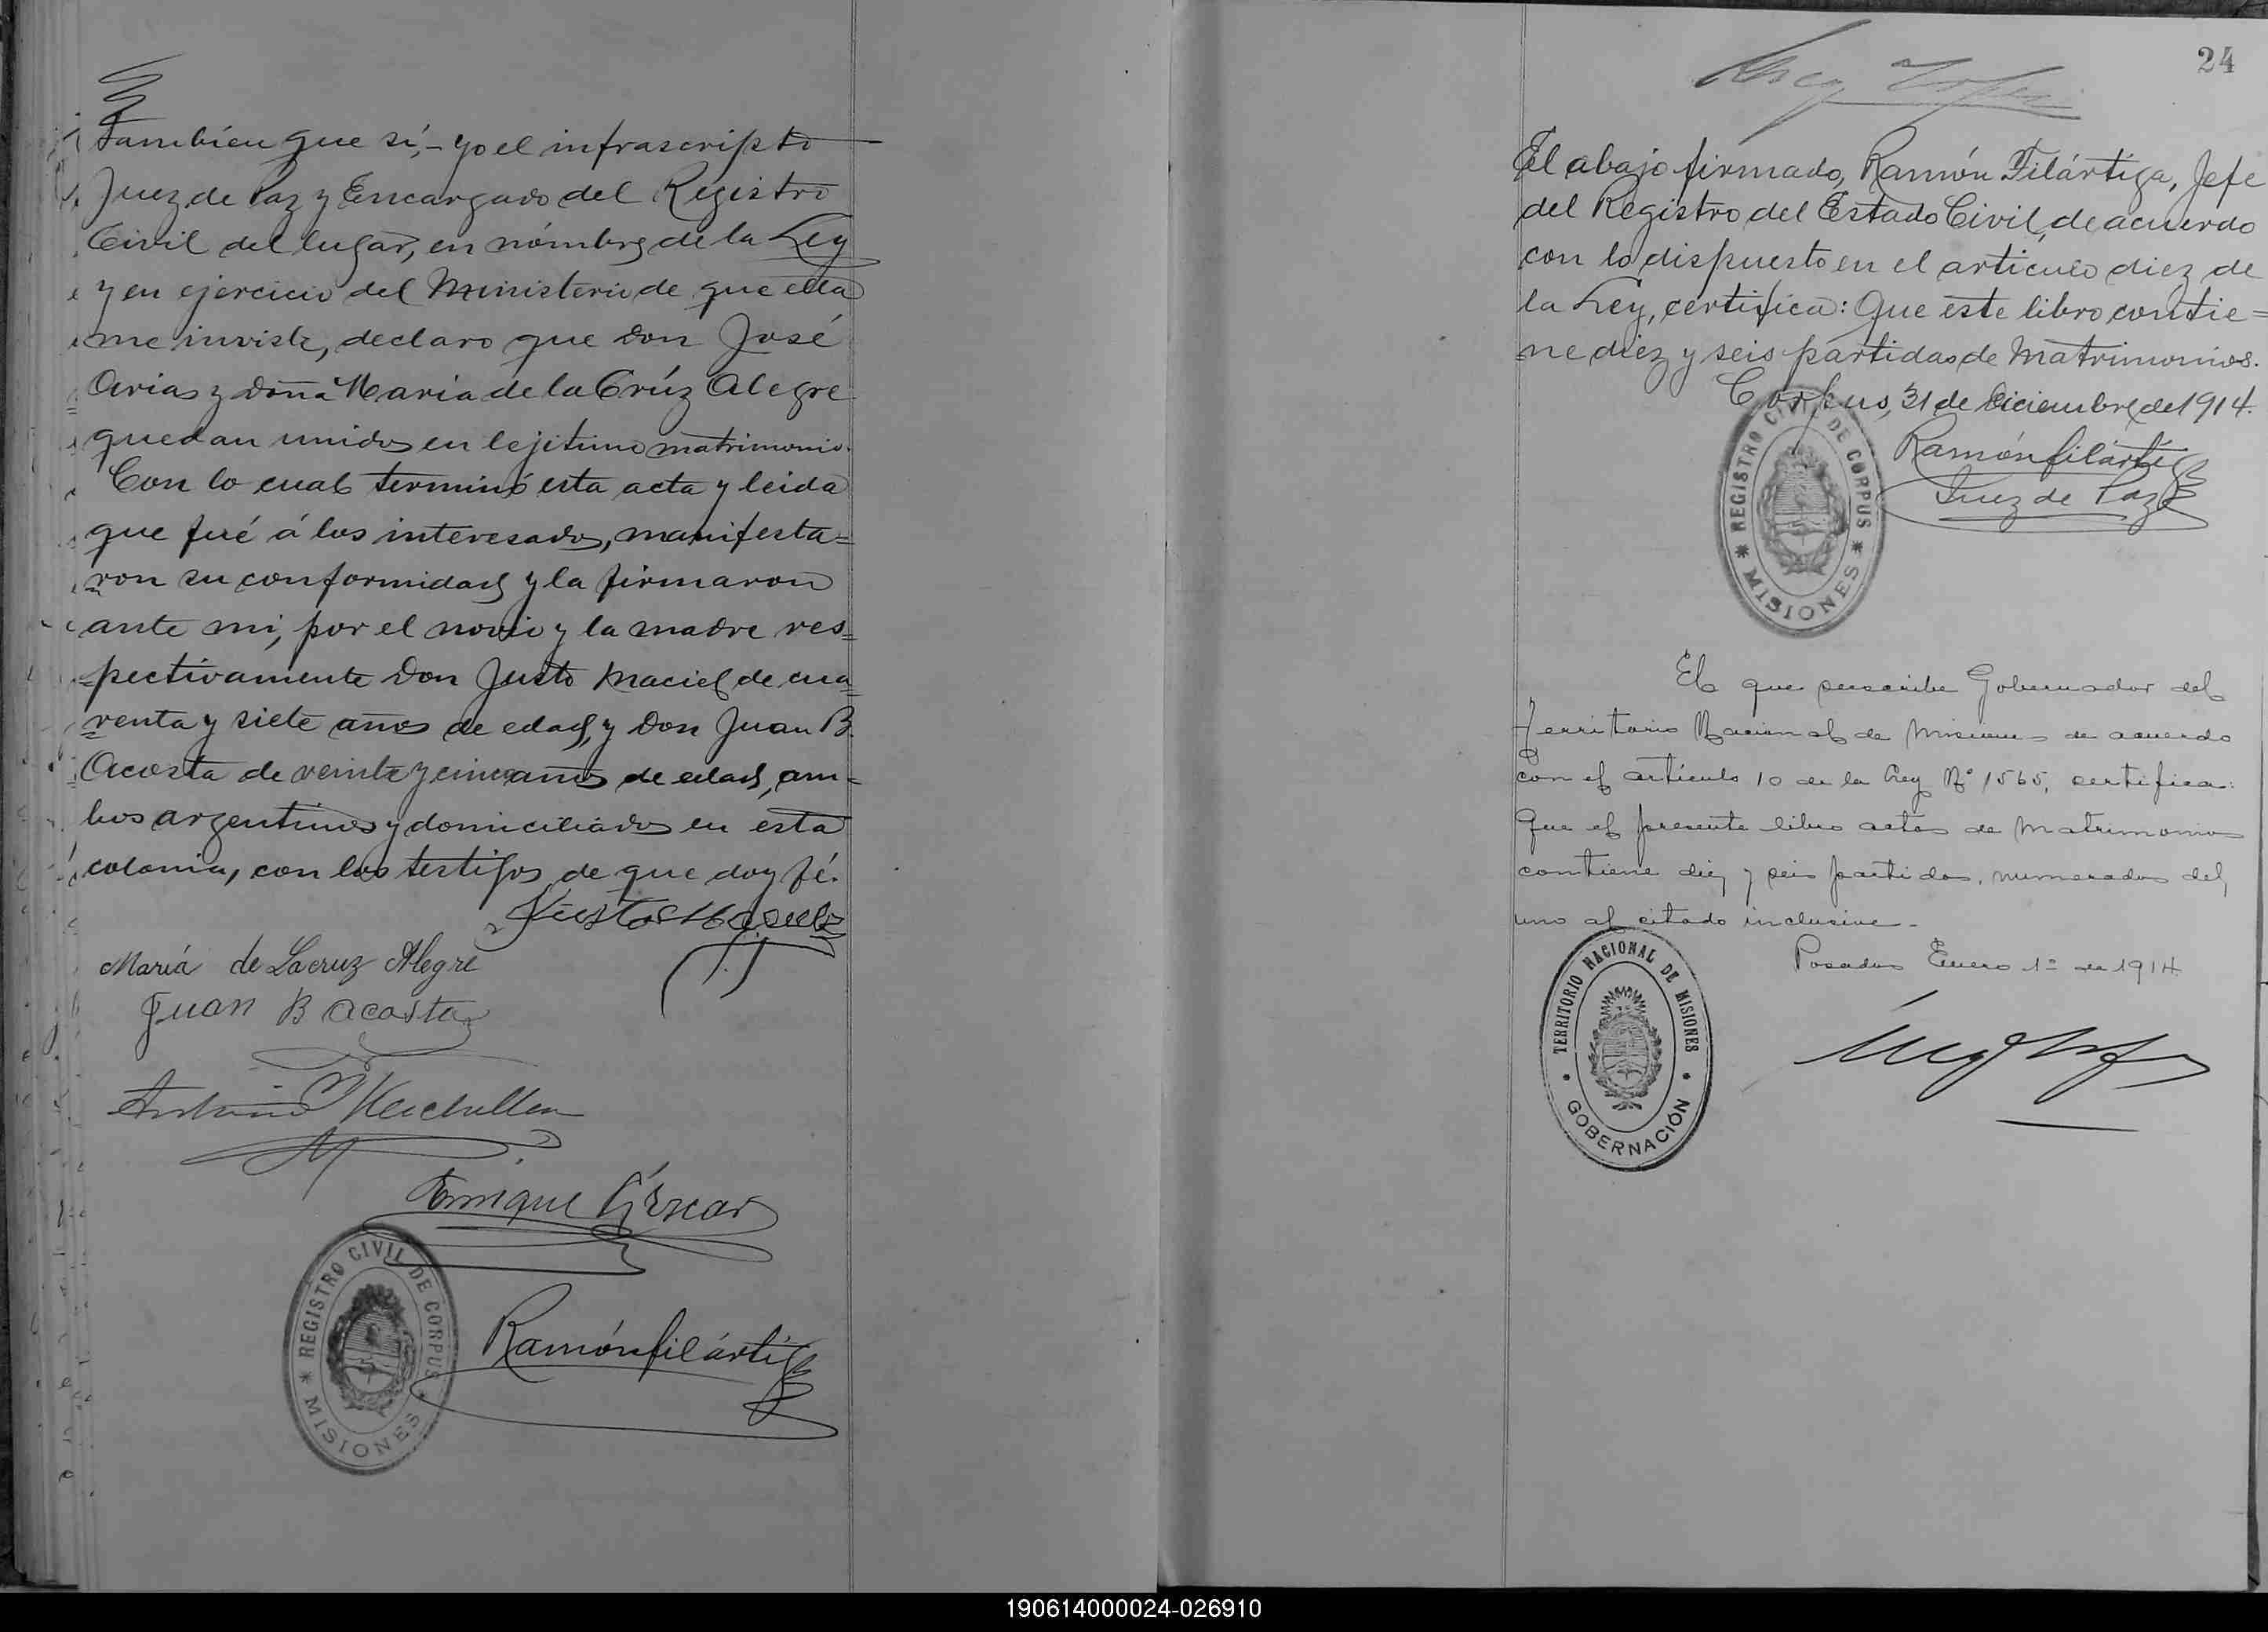 también que sí,- yo el infrascripto
Juez de Paz y Encargado del Registro
Civil del lugar, en nómbre de la Ley
y en ejercicio del Ministerio de que ella
me inviste, declaro que Don José
Arias y Doña Maria de la Crúz Alegre
quedan unidos en lejitimo matrimonio.
Con lo cual terminó esta acta y leida
que fué á los interesados, manifesta=
ron su conformidad y la firmaron
ante mi, por el novio y la madre res=
=pectivamente Don Justo Maciel de cua=
renta y siete años de edad, y Don Juan B.
Acosta de veinte y cinco años de edad, am=
bos argentinos y domiciliados en esta
colonia, con los testigos de que doy fé.
Justo Maciel
María de Lacruz Alegre
Juan B Acosta
Antonio
Enrique
Ramón Filártiga
REGISTRO CIVIL DE CORPUS
MISIONES
24
El abajo firmado, Ramón Filártiga, Jefe
del Registro del Estado Civil, de acuerdo
con lo dispuesto en el articulo diez de
la Ley, certifica: Que este libro contie=
ne diez y seis partidas de Matrimonios.
Corpus, 31 de Diciembre de 1914.
Ramón Filártiga
Juez de Paz
REGISTRO CIVIL DE CORPUS
MISIONES
El que suscribe Gobernador del
Territorio Nacional de Misiones de acuerdo
con el artículo 10 de la Ley Nº 1565, certifica:
Que el presente libro actas de Matrimonios
contiene diez y seis partidas, numeradas del
uno al citado inclusive.-
Posadas Enero 1º de 1914
TERRITORIO NACIONAL DE MISIONES
GOBERNACIÓN
190614000024-026910